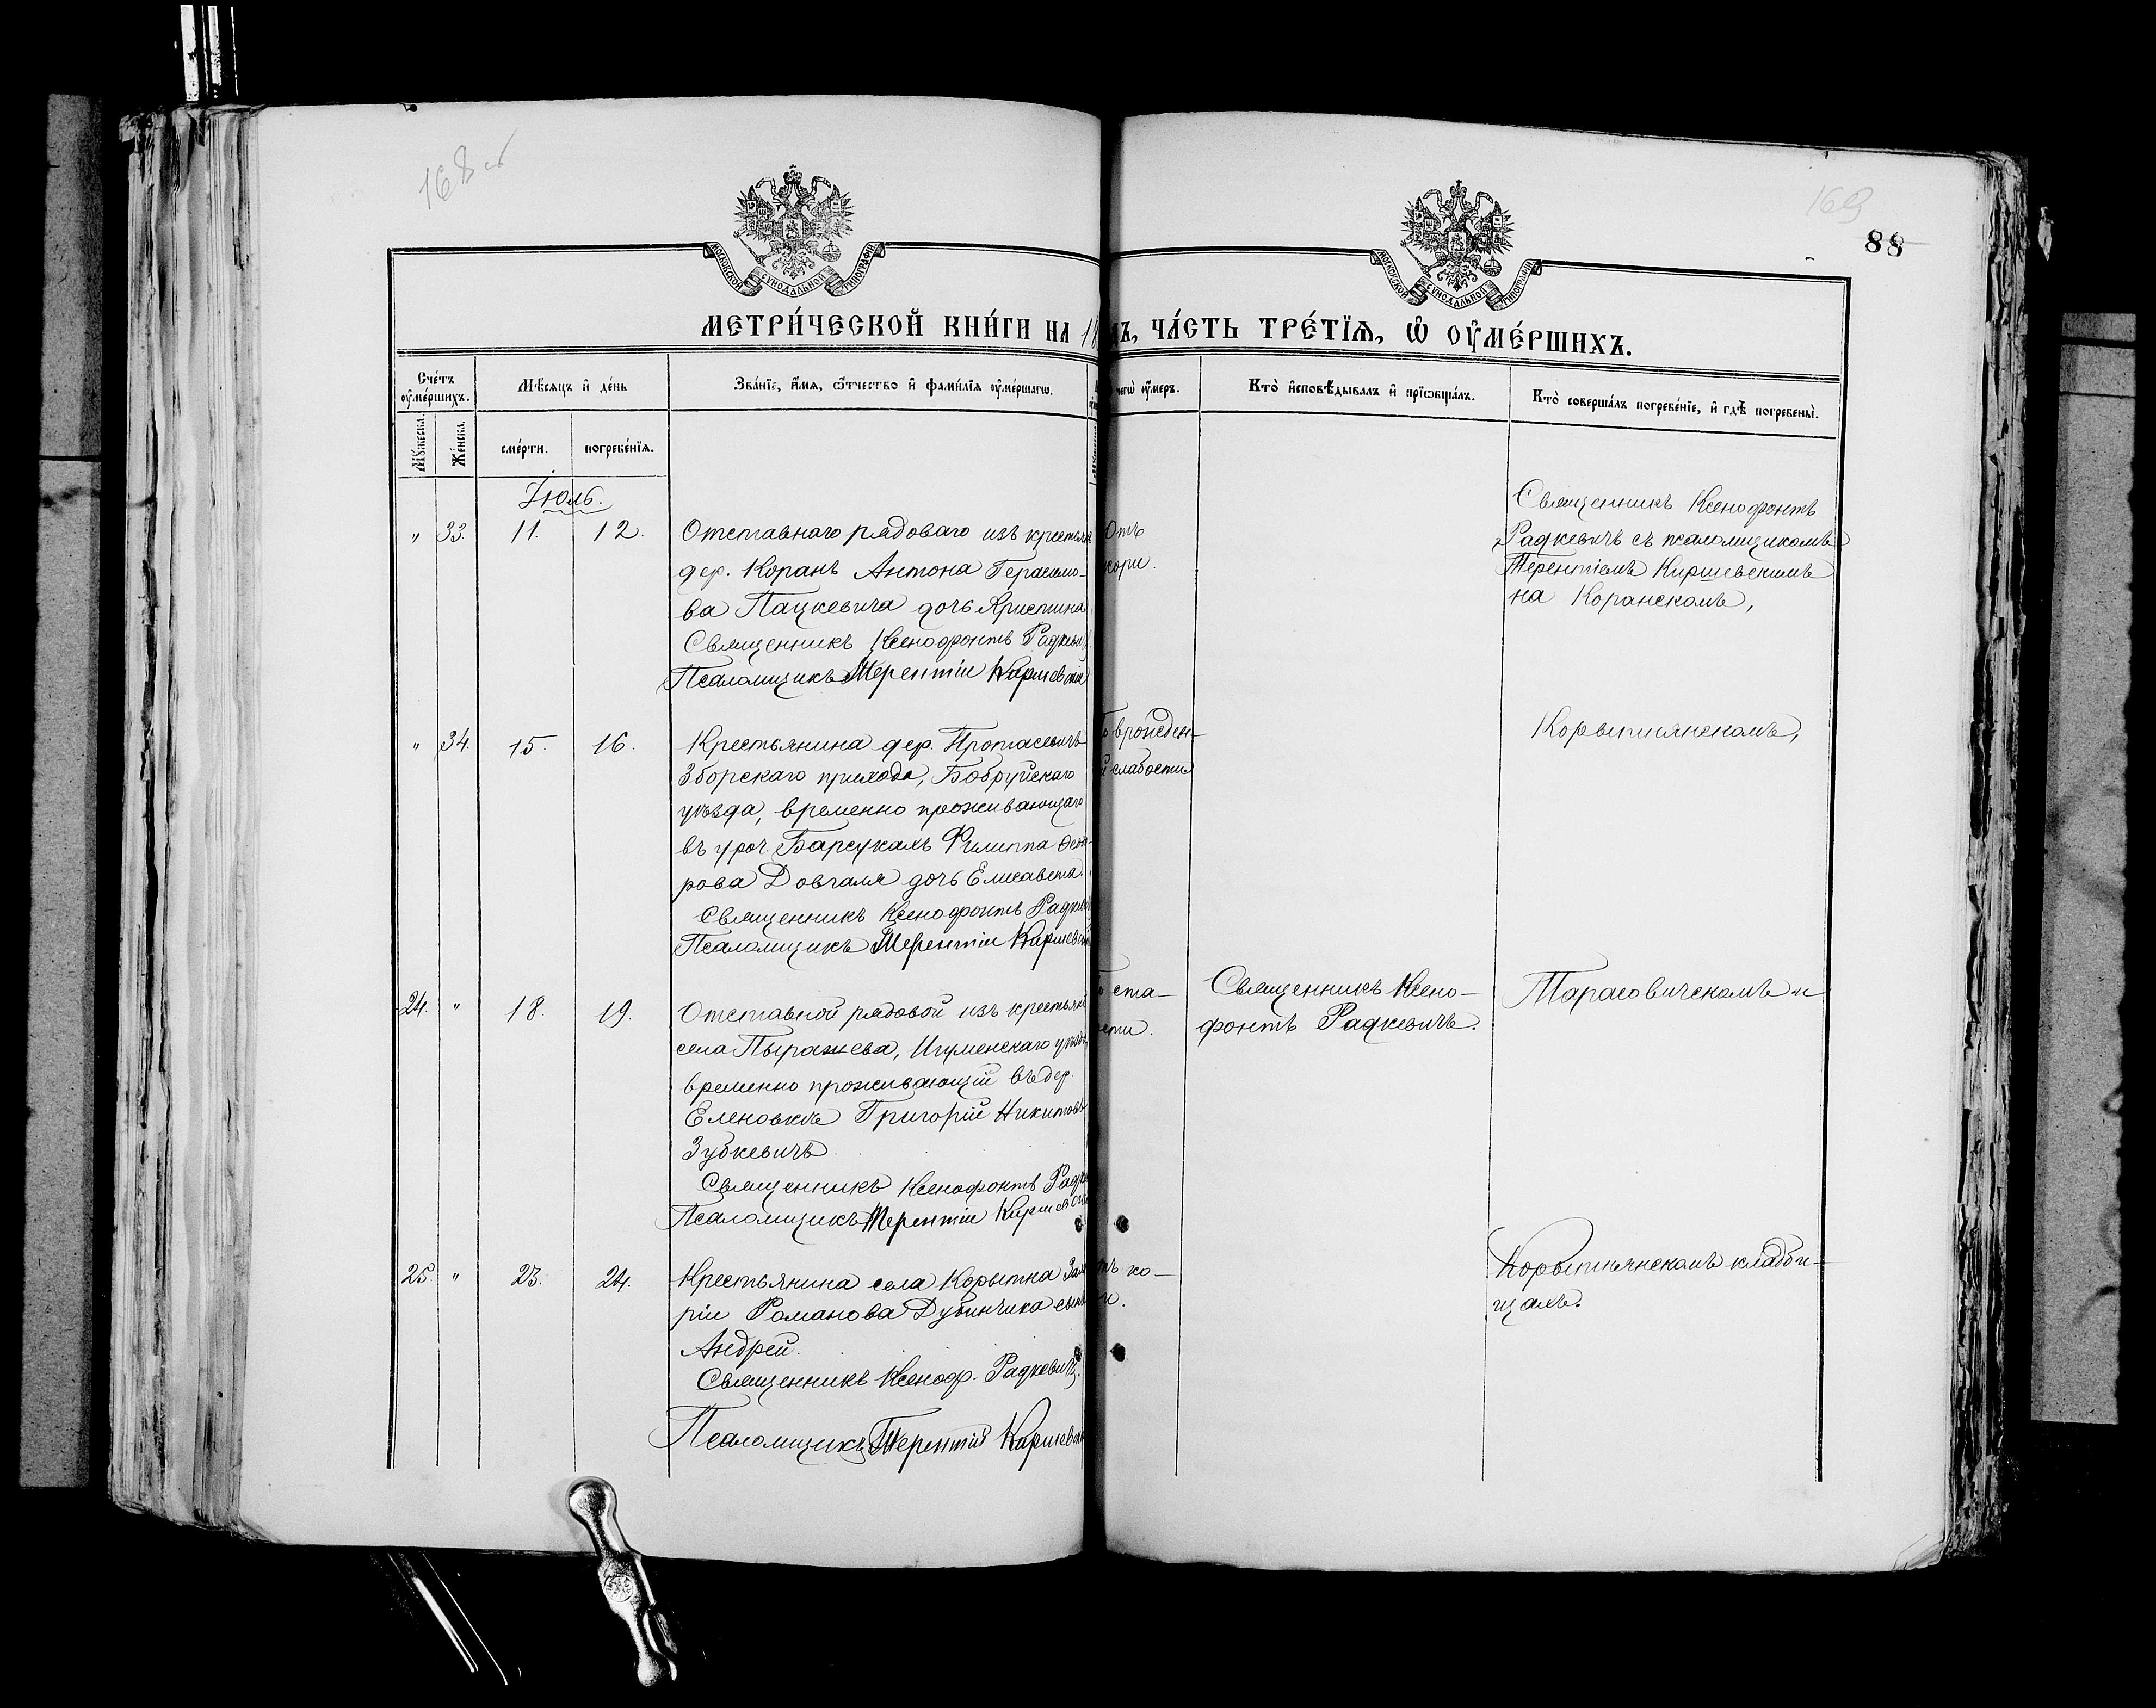 168 об
169
88
МОСКОВСКОЙ СѴНОДАЛЬНОЙ ТИПОГРАФІИ
МОСКОВСКОЙ СѴНОДАЛЬНОЙ ТИПОГРАФІИ
МЕТРИ́ЧЕСКОЙ КНИ́ГИ НА 18 ДЪ, ЧА́СТЬ ТРЕ́ТІѦ, Ѡ҆ ОУ҆МЕ́РШИХЪ.
Сче́тъ оу҆ме́ршихъ.
Мѣ́сяцъ и҆ де́нь
Зва́нїе, и҆́мя, ѻ҆́тчество и҆ фамѝлїя оу҆ме́ршагѡ.
чегѡ̀ оу҆́меръ.
Кто̀ и҆сповѣ́дывалъ и҆ прїѡбща́лъ.
Кто̀ соверша́лъ погребе́нїе, и҆ гдѣ̀ погребены̀.
Мꙋ́жеска.
Же́нска.
сме́рти.
погребе́нїѧ.
Іюль.
" 33. 11. 12.
Отставнаго рядоваго изъ крестьян
дер. Коранъ Антона Герасимо-
ва Пацкевича дочь Христина
Священникъ Ксенофонтъ Радкевичъ
Псаломщикъ Терентій Киршевскій
Отъ
кори.
Священникъ Ксенофонтъ
Радкевичъ съ псаломщикомъ
Терентіемъ Киршевскимъ
на Коранскомъ,
" 34. 15. 16.
Крестьянина дер. Протасевичъ
Зборскаго прихода, Бобруйскаго
уѣзда, временно проживающаго
въ уроч. Барсукахъ Филиппа Ѳеод-
рова Довгаля дочь Елисавета.
Священникъ Ксенофонтъ Радкевич
Псаломщикъ Терентій Киршевскій
врожден-
й слабости
Корытнянскомъ,
24. " 18. 19.
Отставной рядовой изъ крестьянъ
села Пырашева, Игуменскаго уѣзда,
временно проживающій въ дер.
Еленовкѣ Григорій Никитовъ
Зубкевичъ
Священникъ Ксенофонтъ Радк
Псаломщикъ Терентій Киршевскій
ста-
ости.
Священникъ Ксено-
фонтъ Радкевичъ.
Тарасовичскомъ и
25. " 23. 24.
Крестьянина села Корытна
рія Романова Дубинчика сынъ
Андрей.
Священникъ Ксеноф. Радкевичъ.
Псаломщикъ Терентій Киршевск
тъ ко-
и.
Корытнянскомъ кладби-
щахъ.